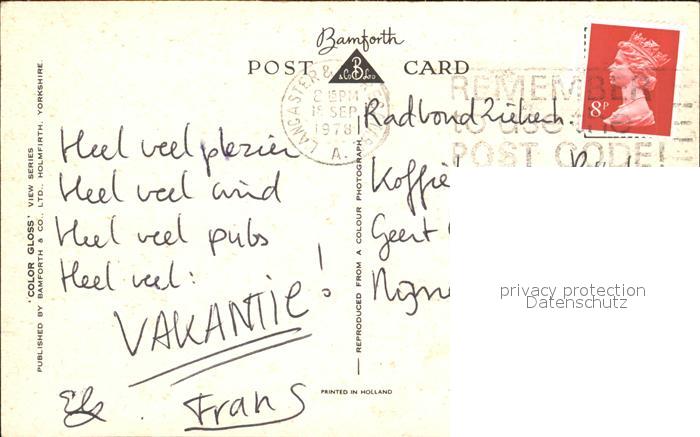 Bamforth
POST CARD
B
& Co Ltd
2 15 PM
SEP
1978
A.
LANCASTER &
REMEMBER
to use the
POST CODE!
8P
Heel veel plezier
Heel veel wind
Heel veel pubs
Heel veel:
VAKANTIE!
Frans
Koffie
Geert
PRINTED IN HOLLAND
REPRODUCED FROM A COLOUR PHOTOGRAPH
'COLOR GLOSS' VIEW SERIES
PUBLISHED BY BAMFORTH & CO., LTD., HOLMFIRTH, YORKSHIRE.
privacy protection
Datenschutz